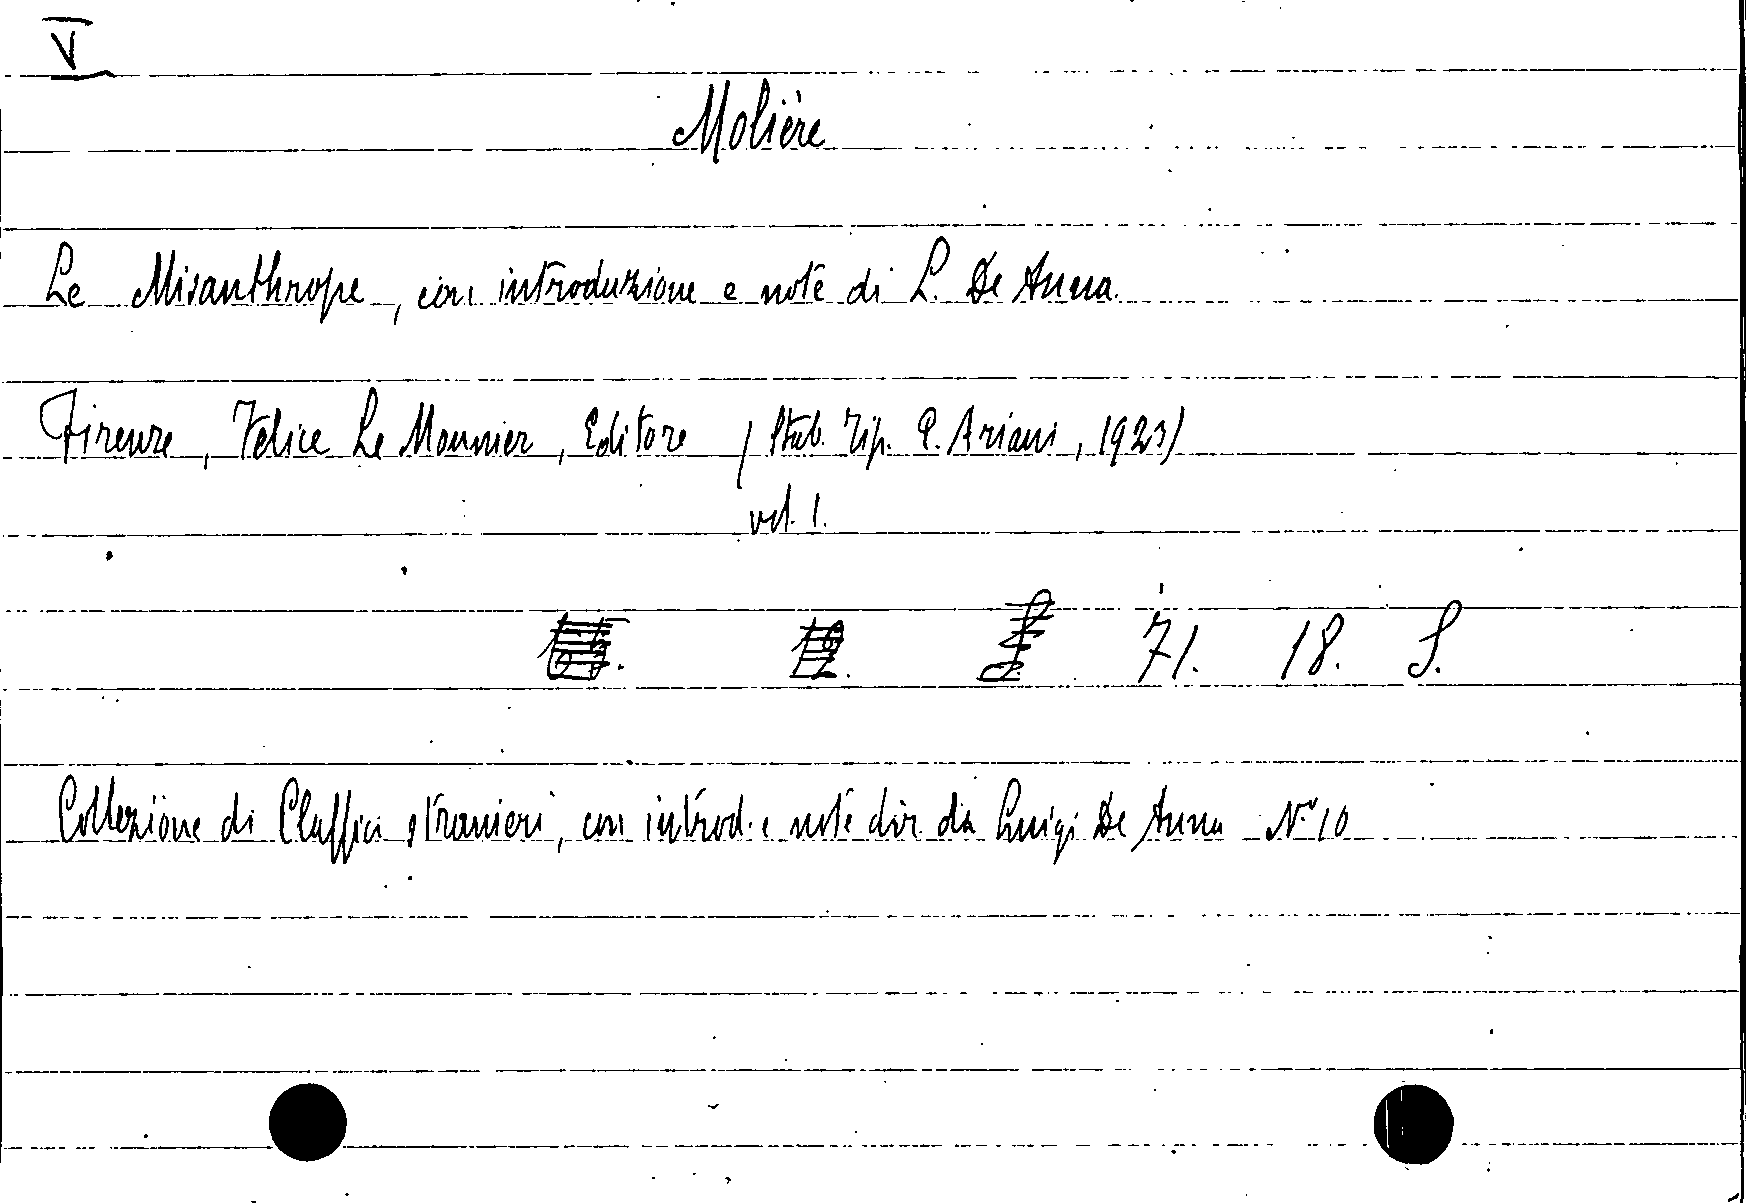 V
Molière
Le Misanthrope, con introduzione e note di L. De Anna.
Firenze, Felice Le Monnier, Editore (Stab. Tip. E. Ariani, 1923)
vol. 1.
71. 18. S.
Collezione di Classici stranieri, con introd. e note dir. da Luigi De Anna N.º 10